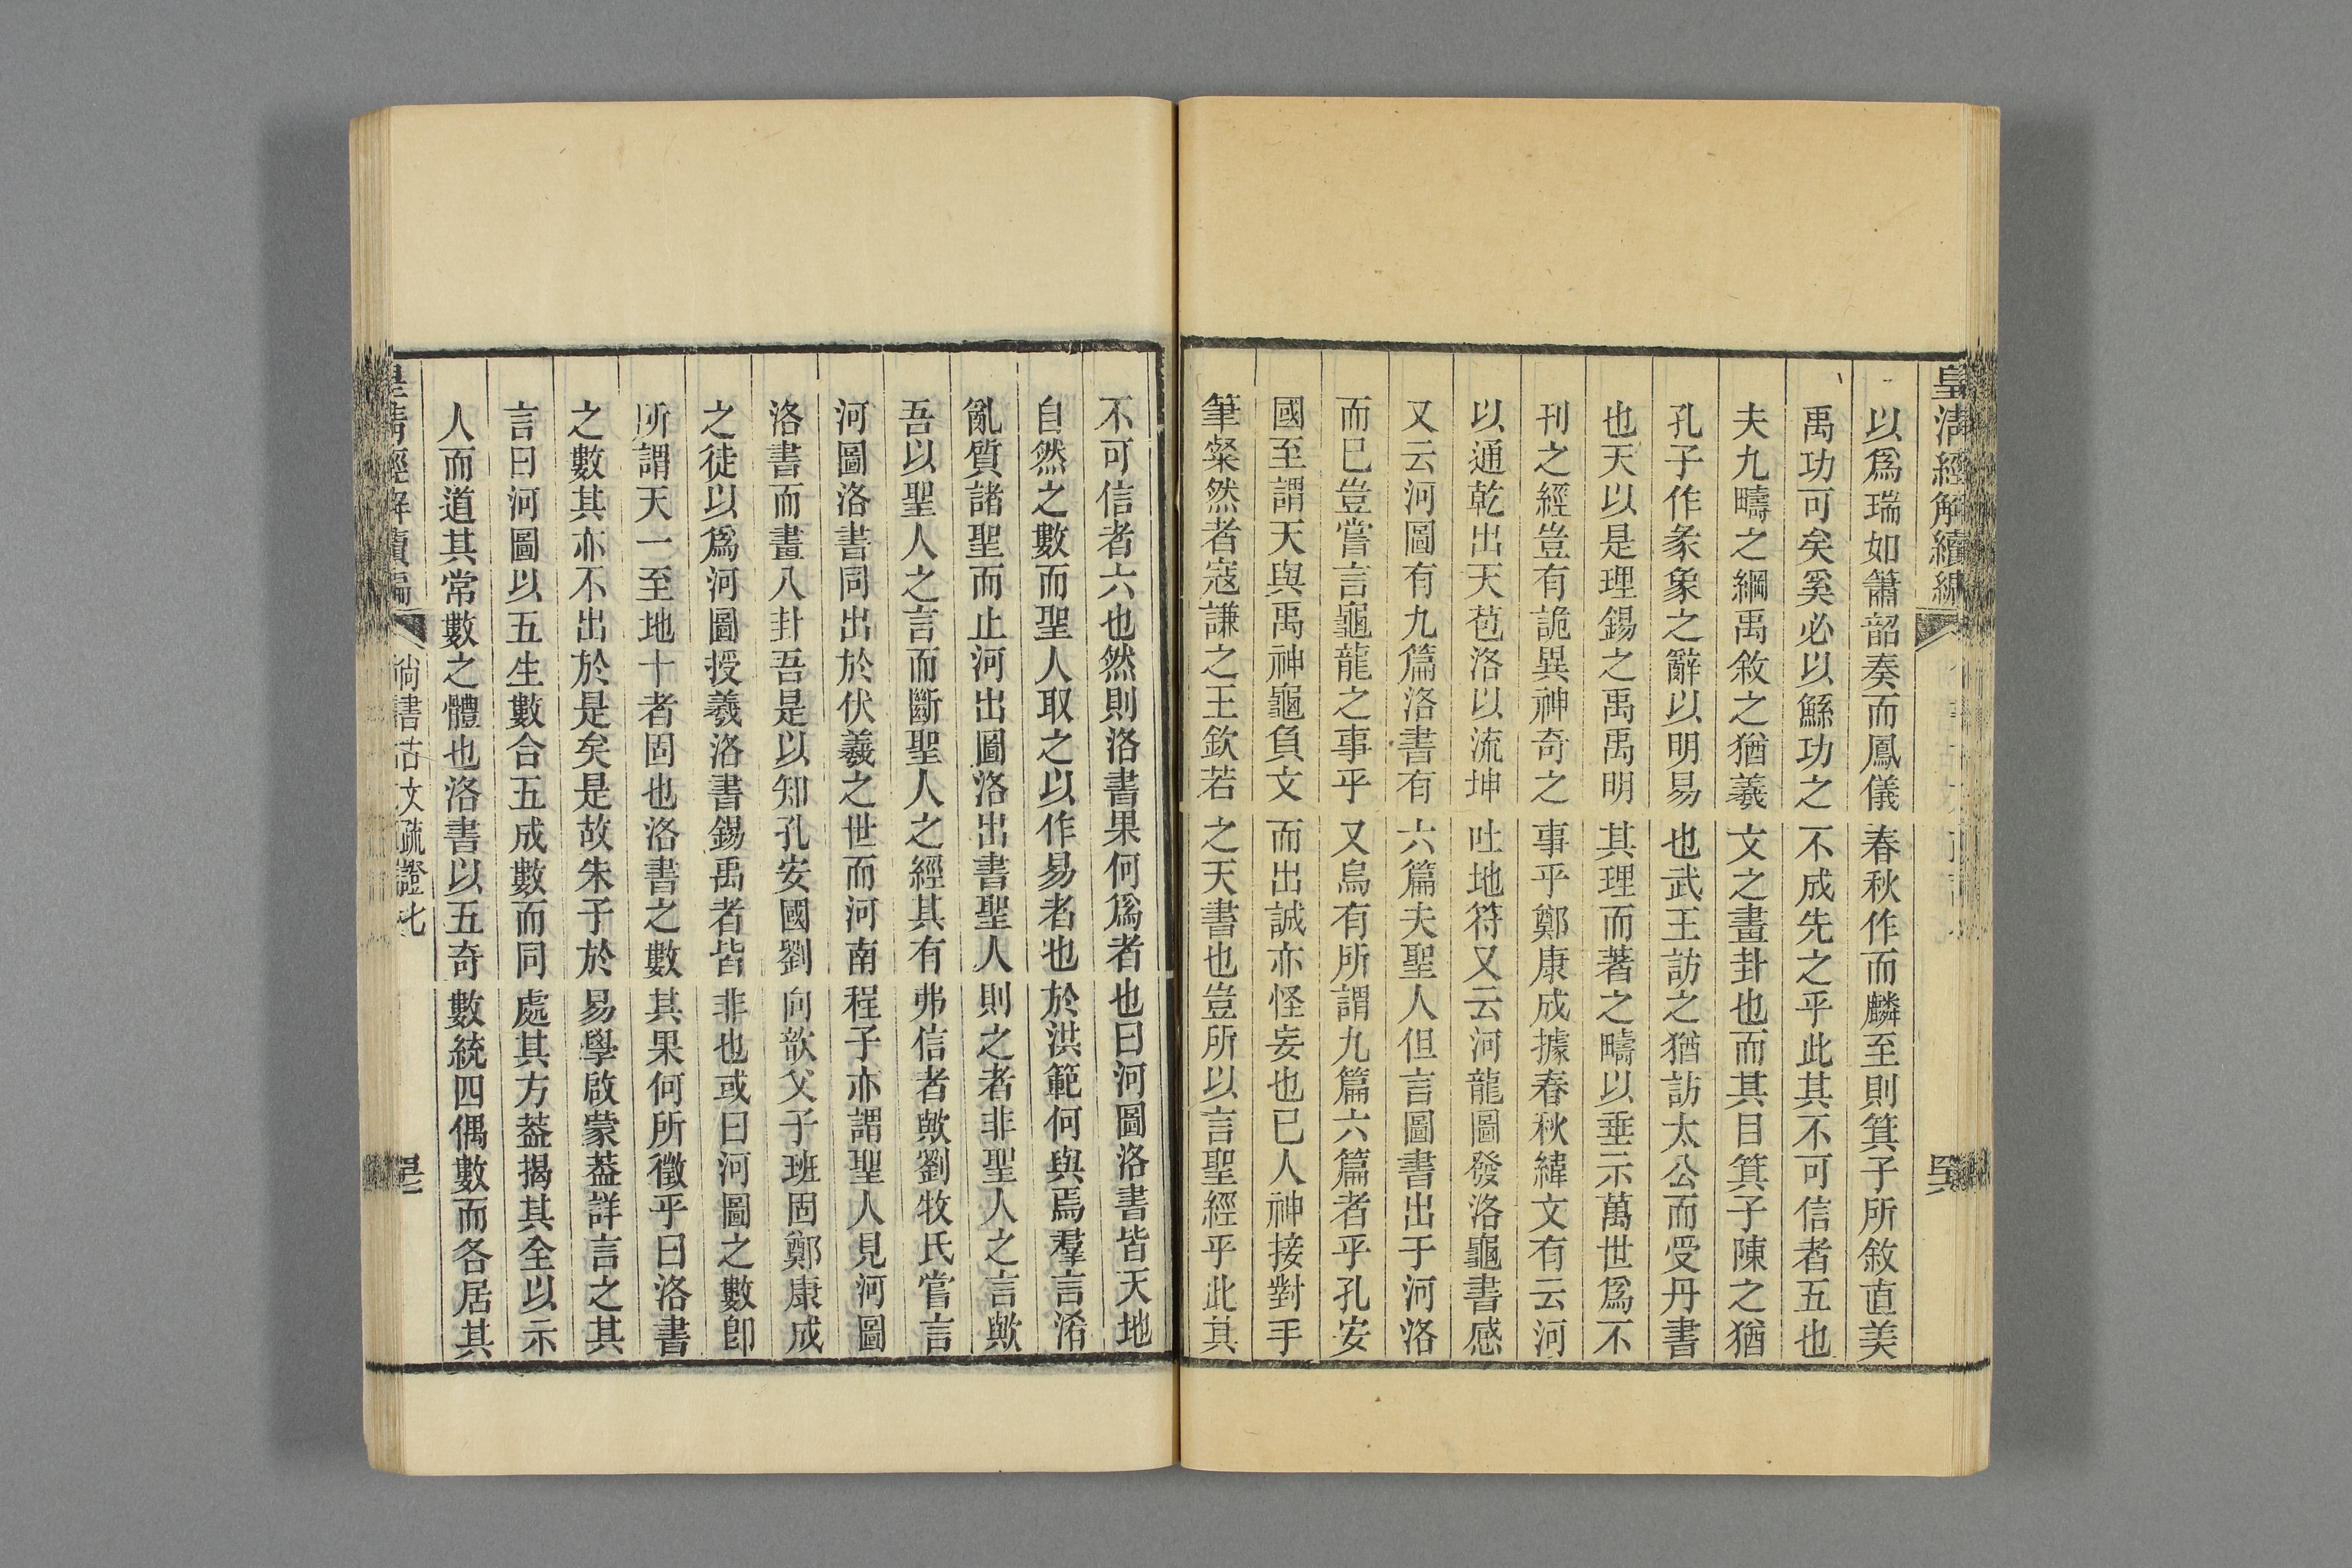 皇清經解續編
吴
以爲瑞如簫韶奏而鳳儀春秋作而麟至則箕子所敘直美
禹功可矣奚必以鯀功之不成先之乎此其不可信者五也
夫九疇之綱禹敘之猶羲文之畫卦也而其目箕子陳之猶
孔子作彖象之辭以明易也武王訪之猶訪太公而受丹書
也天以是理錫之禹禹明其理而著之疇以垂示萬世爲不
刊之經豈有詭異神奇之事乎鄭康成據春秋緯文有云河
以通乾出天苞洛以流坤吐地符又云河龍圖發洛龜書感
又云河圖有九篇洛書有六篇夫聖人但言圖書出于河洛
而已豈嘗言龜龍之事乎又烏有所謂九篇六篇者乎孔安
國至謂天與禹神龜負文而出誠亦怪妄也已人神接對手
筆粲然者寇謙之王欽若之天書也豈所以言聖經乎此其
不可信者六也然則洛書果何爲者也曰河圖洛書皆天地
自然之數而聖人取之以作易者也於洪範何與焉羣言淆
亂質諸聖而止河出圖洛出書聖人則之者非聖人之言歟
吾以聖人之言而斷聖人之經其有弗信者歟劉牧氏嘗言
河圖洛書同出於伏羲之世而河南程子亦謂聖人見河圖
洛書而畫八卦吾是以知孔安國劉向歆父子班固鄭康成
之徒以爲河圖授羲洛書錫禹者皆非也或曰河圖之數卽
所謂天一至地十者固也洛書之數其果何所徵乎曰洛書
之數其亦不出於是矣是故朱子於易學啟蒙葢詳言之其
言曰河圖以五生數合五成數而同處其方葢揭其全以示
人而道其常數之體也洛書以五奇數統四偶數而各居其
皇清經解續編
尙書古文疏證七